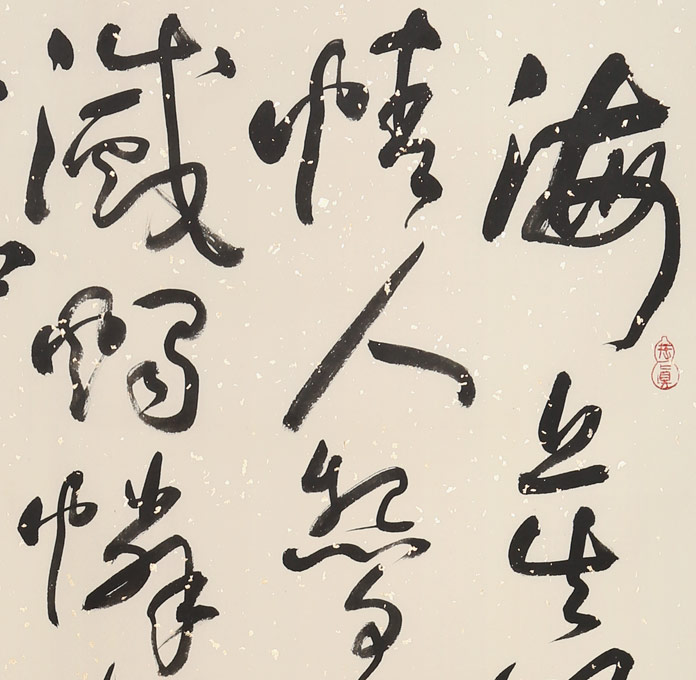 海上生明
情人怨
滅燭憐